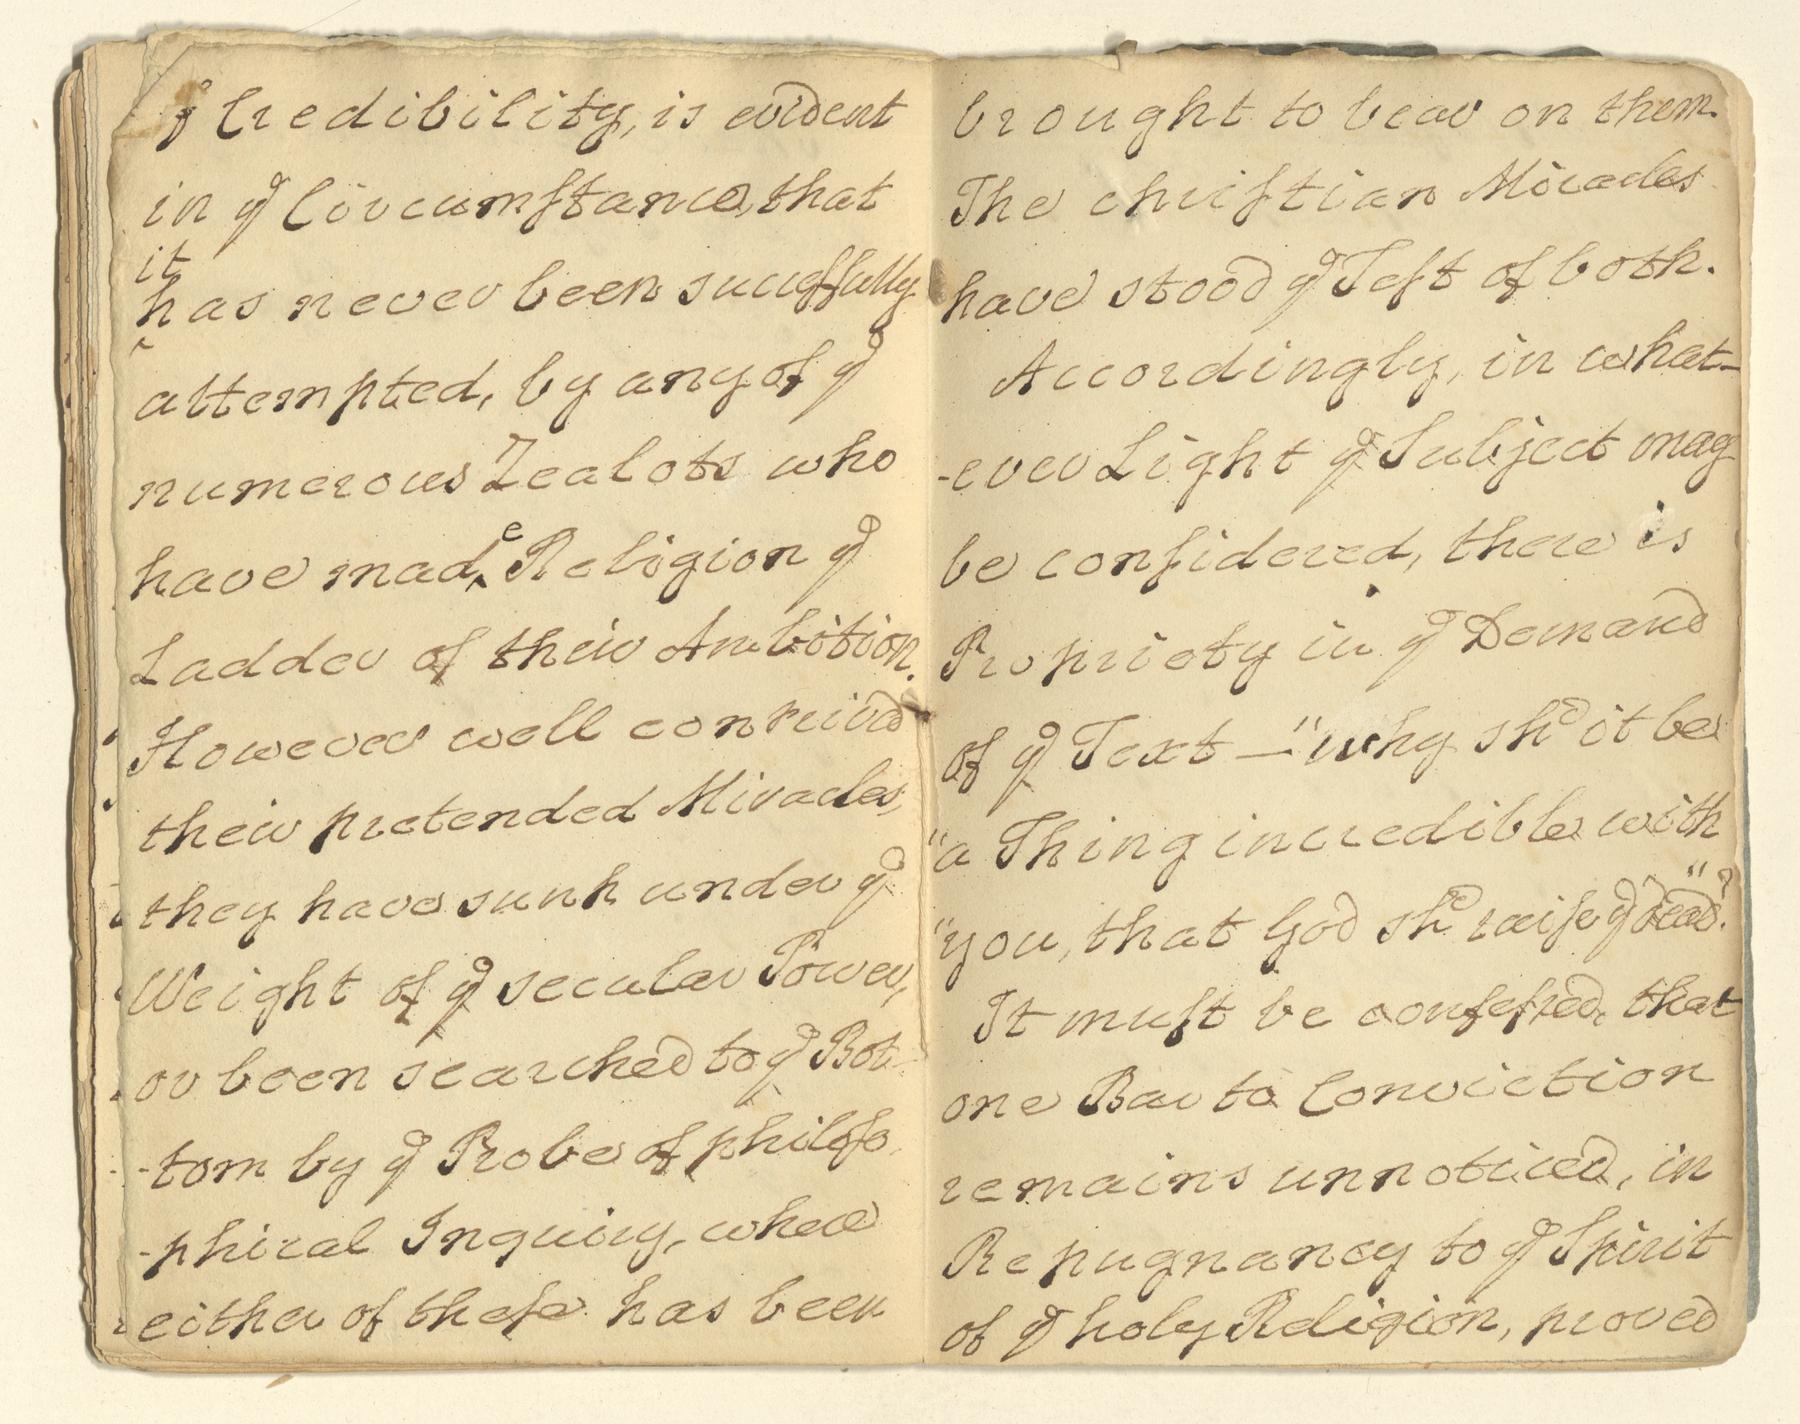 of Credibility, is evident
in yᵉ Circumstance, that
it
has never been succeſsfully
attempted, by any of yᵉ
numerous Zealots who
e
have mad‸ Religion yᵉ
Ladder of their Ambition.
However well contrived
their pretended Miracles,
they have sunk under yᵉ
Weight of yᵉ secular Power,
or been searched to yᵉ Bot-
-tom by yᵉ Probe of philoſo
-phical Inquiry, where
either of theſe has been
brought to bear on them.
The chriſtian Miracles
have stood yᵉ Teſt of both.
Accordingly, in what-
-ever Light yᵉ Subject may
be conſidered, there is
Propriety in yᵉ Demand
of yᵉ Text — "why shᵈ it be
"a Thing incredible with
"you, that God shᵈ raiſe yᵉ dead?"
It muſt be confeſsed, that
one Bar to Conviction
remains unnoticed, in
Repugnancy to yᵉ Spirit
of yᵉ holy Religion, proved